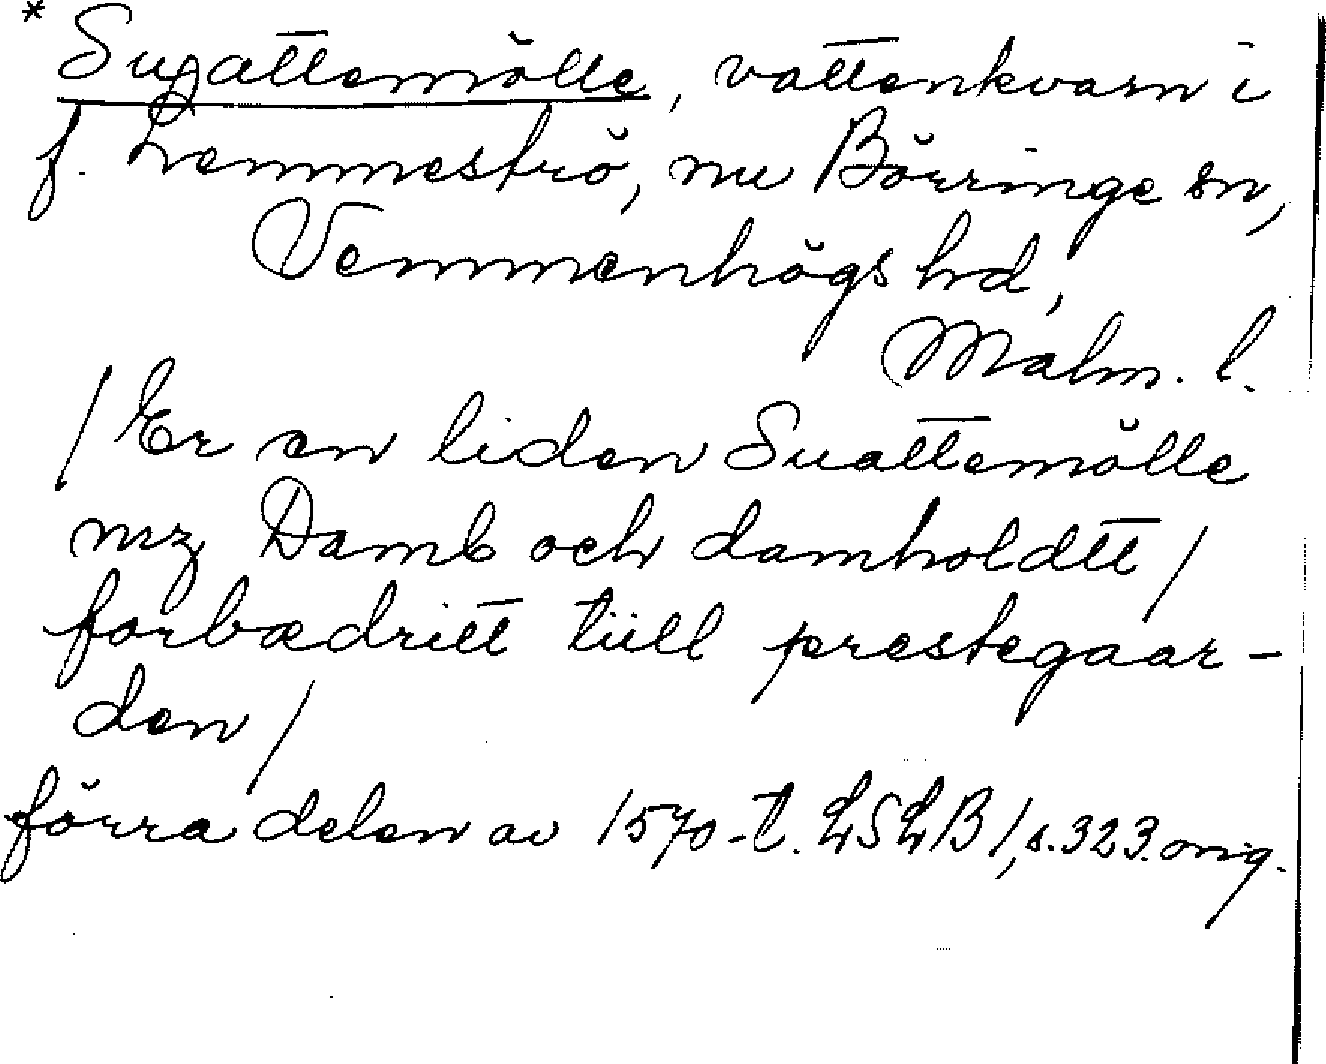 * Suattemölle, vattenkvarn i
f. Lemmeströ, nu Börringe sn,
Vemmenhögs hd,
Malm. l.
/ Er en liden Suattemölle
mz Damb och damholdtt /
forbædritt tiill prestegaar-
den /
förra delen av 1570-t. LSLB 1, s. 323. orig.